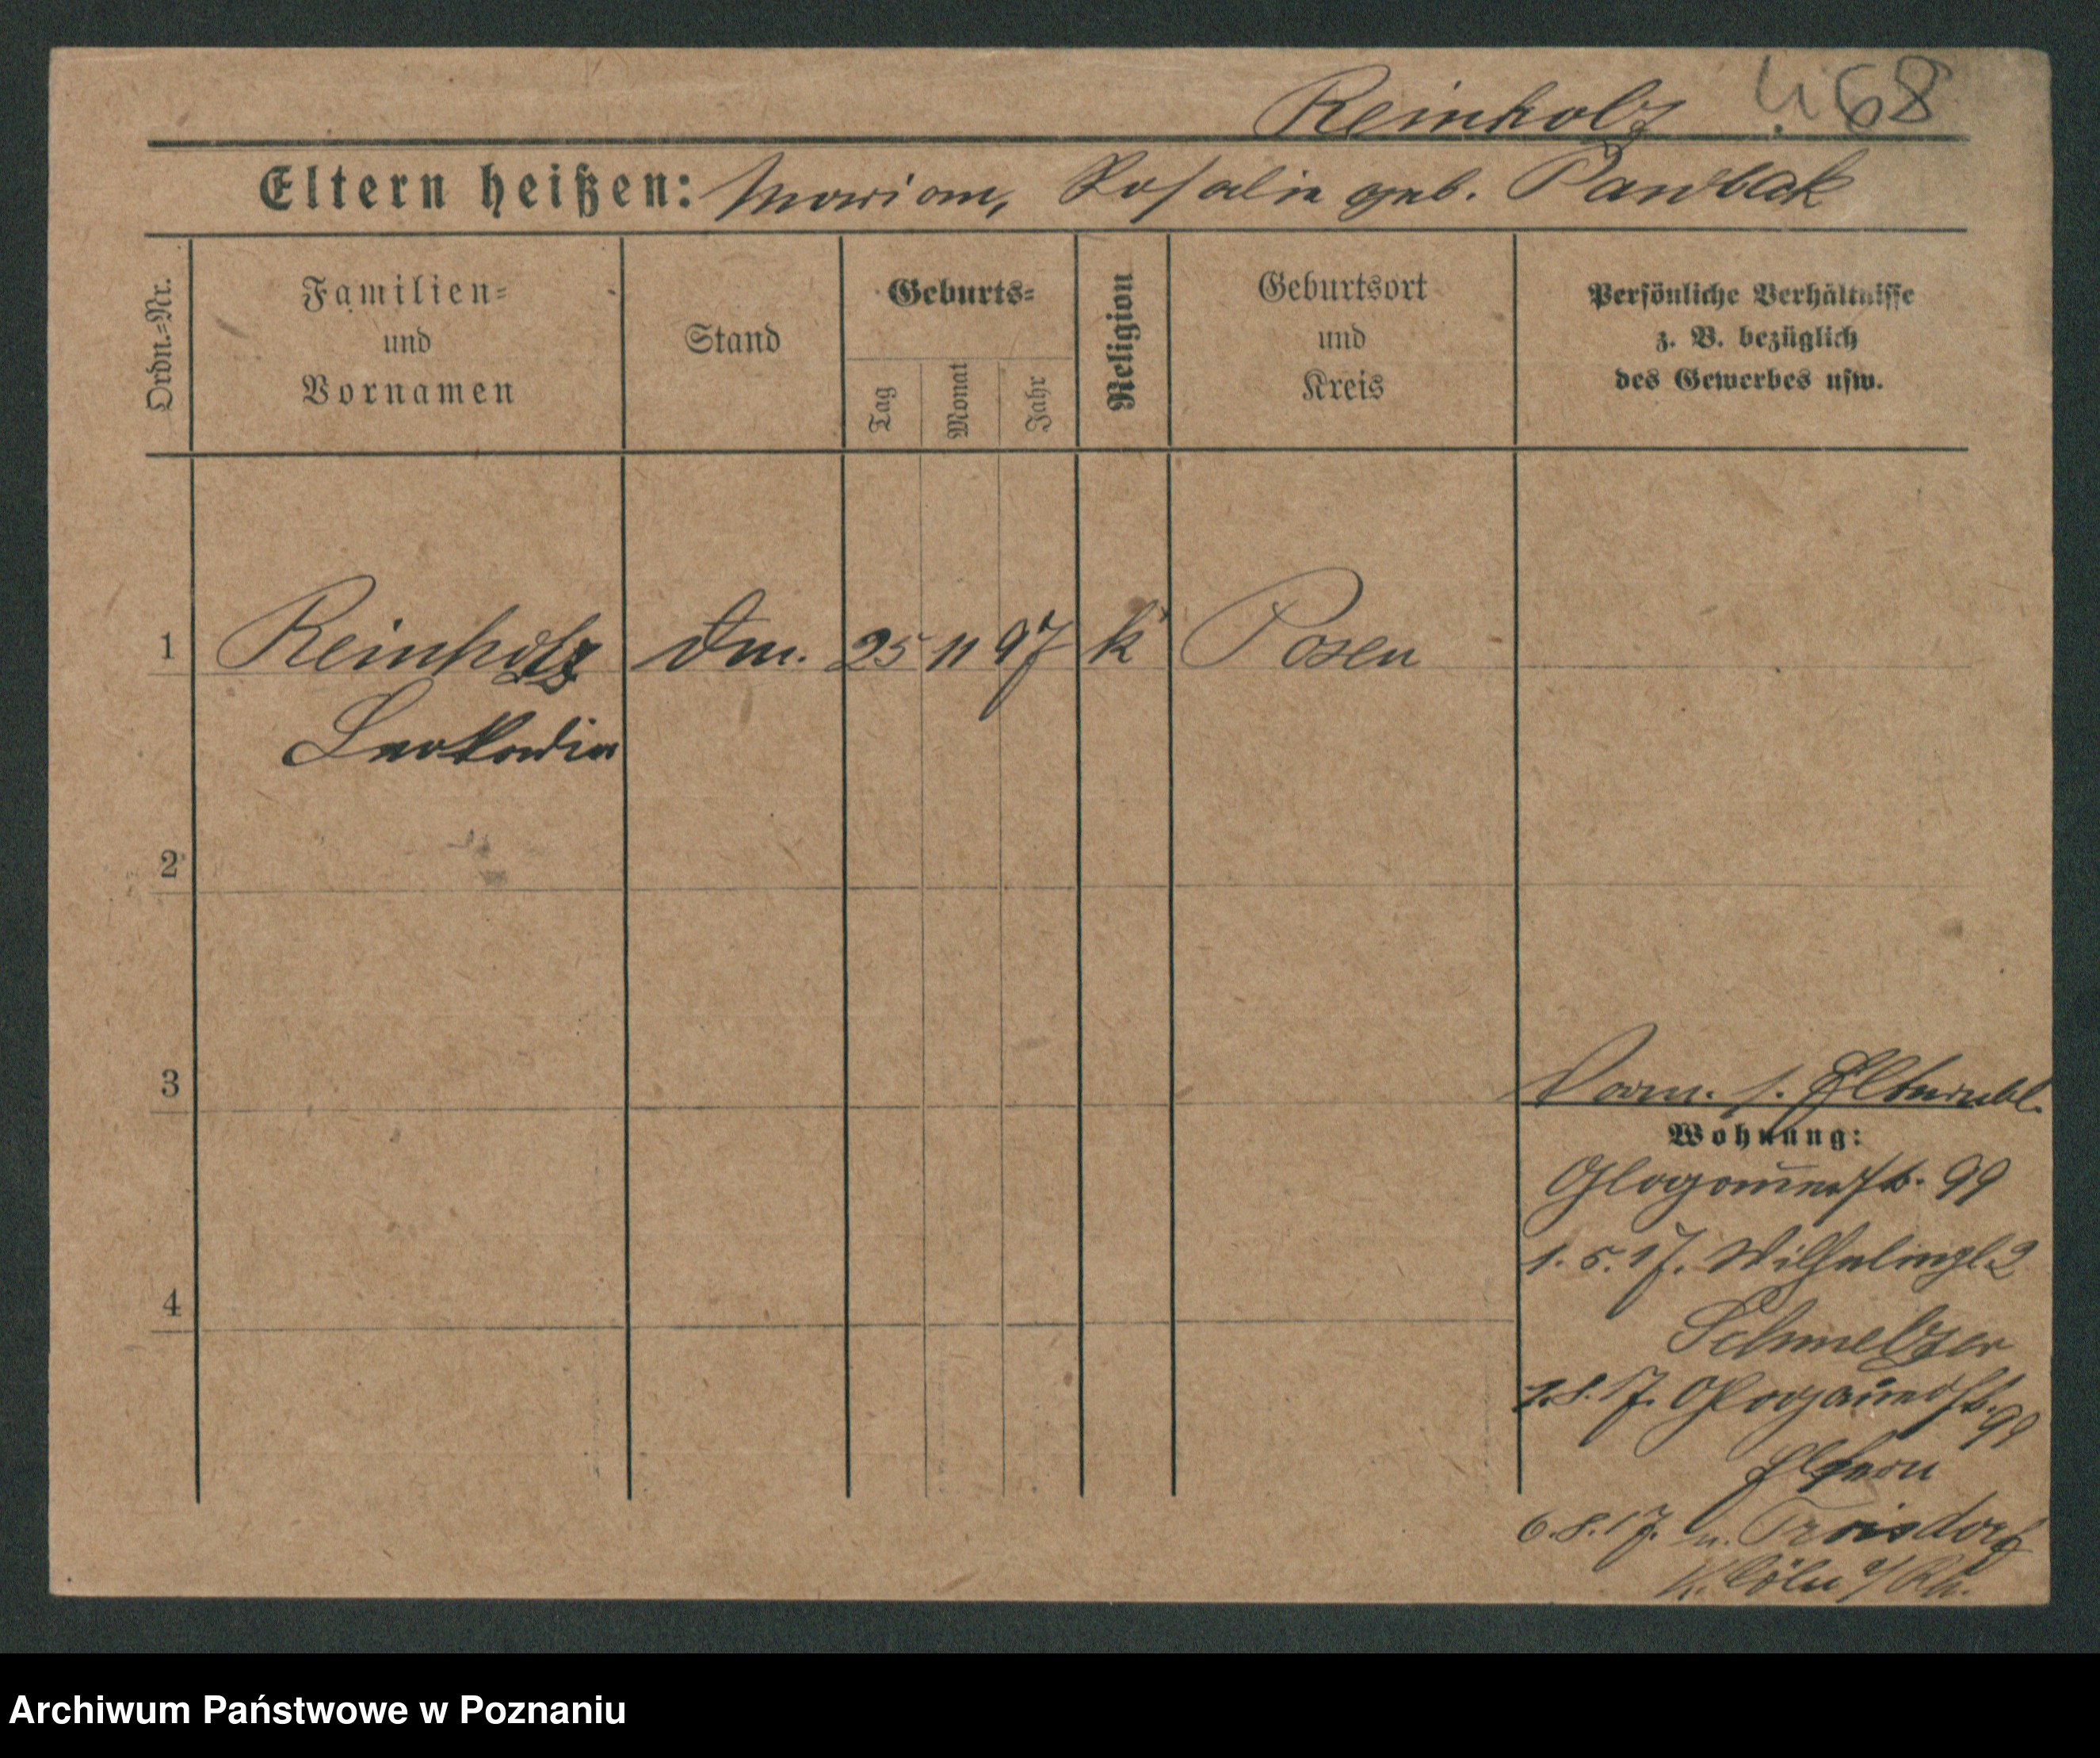 Reinholz 68
Eltern heißen: Marian, Rosalie geb. Pawlak
Ordn.=Nr.
Familien=
und
Vornamen
Stand
Geburts=
Tag
Monat
Jahr
Religion
Geburtsort
und
Kreis
Persönliche Verhältnisse
z. B. bezüglich
des Gewerbes usw.
1 Reinholz 25 11 97 k Posen
Leokadia
2
3
Vorm. s. Elternbl.
Wohnung:
Glogauerstr. 99
1.5.17. Wilhelmpl. 2
Schmelzer
4
1.8.17. Glogauerstr. 99
Eltern
6.8.17. n. Troisdorf
K. Cöln a/Rh.
Archiwum Państwowe w Poznaniu